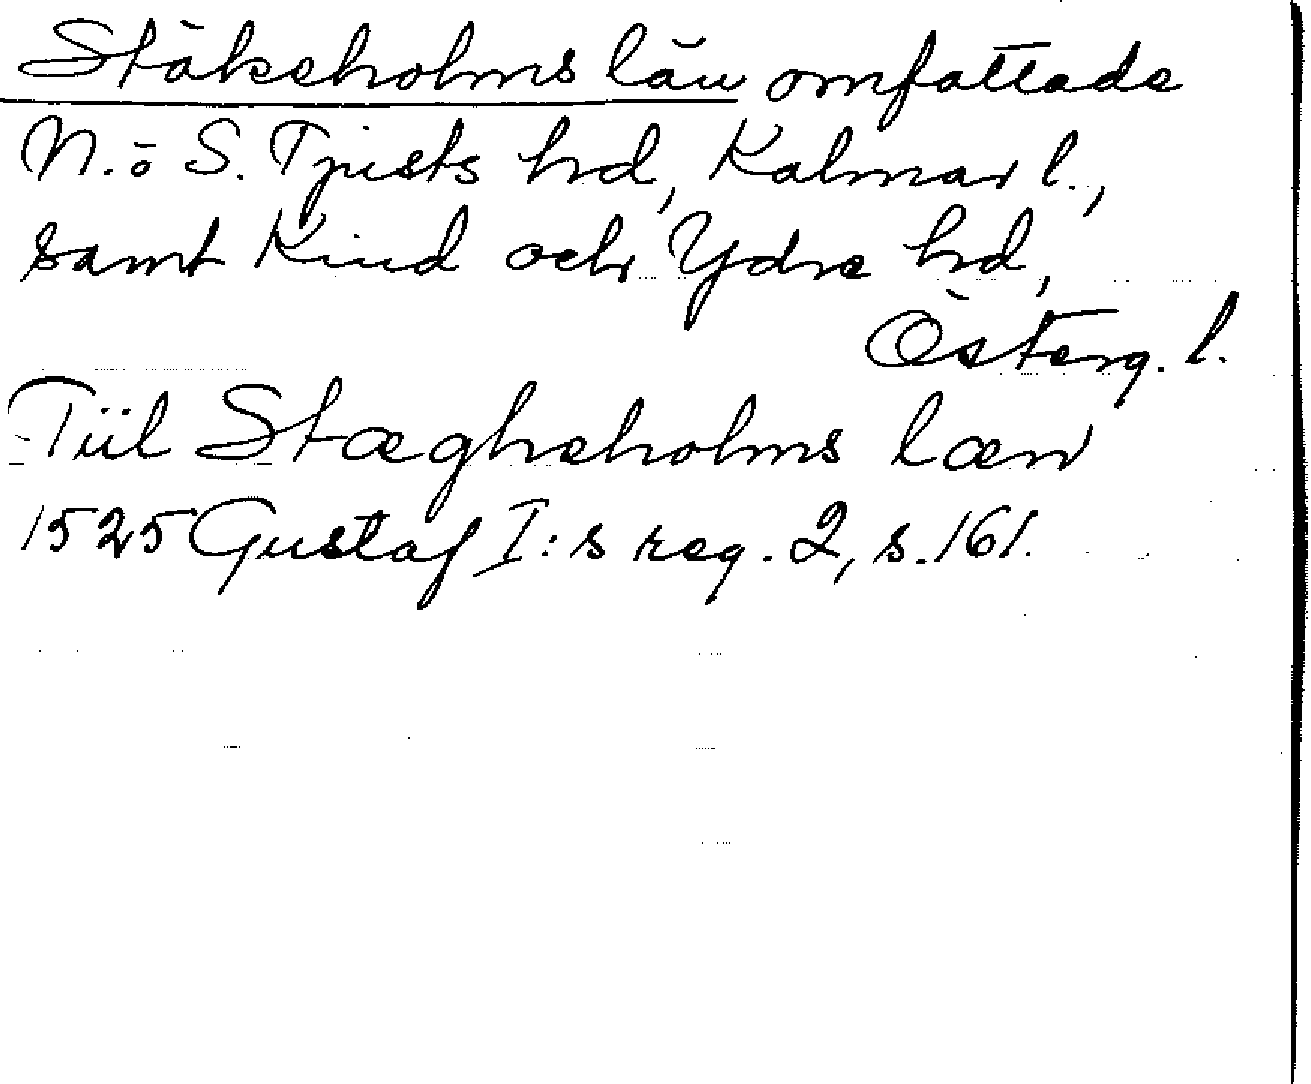 Stäkeholms län omfattade
N. ö S. Tjusts hd, Kalmar l.,
samt Kind och Ydre hd,
Österg. l.
Tiil Stægheholms læn
1525 Gustaf I:s reg. 2, s. 161.